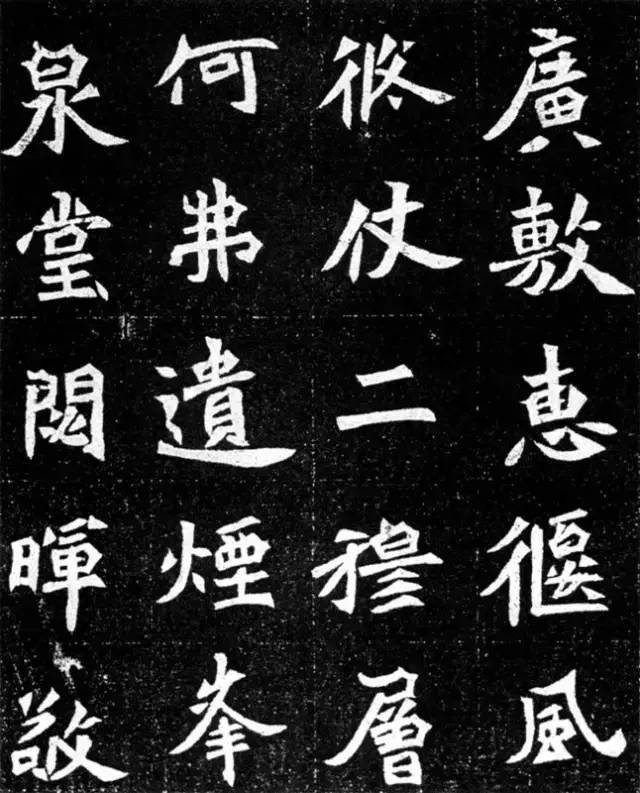 廣敷恵偃風
修仗二穆層
何弗遺煙峯
泉堂閟暉敬